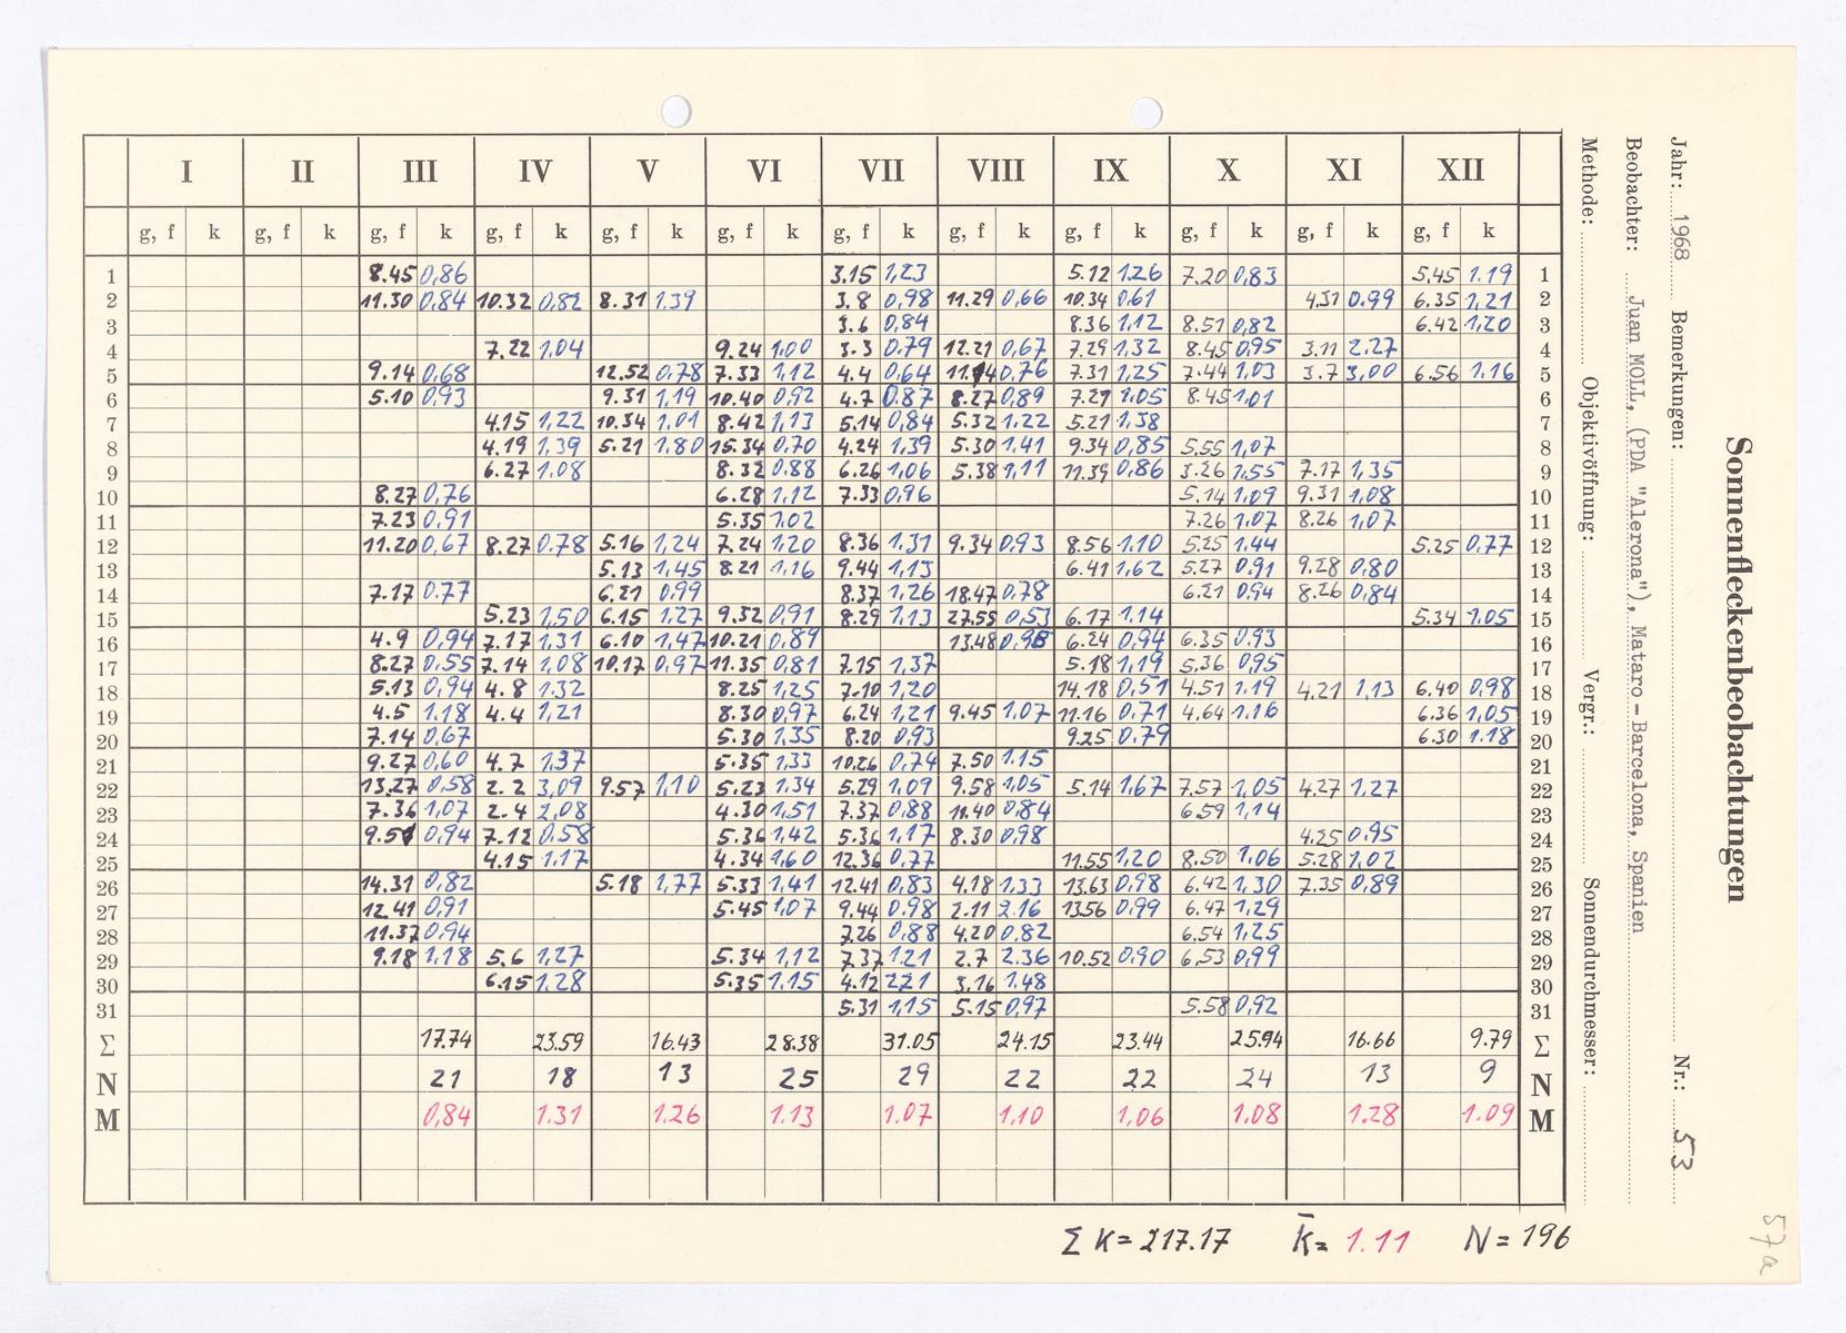 Sonnenfleckenbeobachtungen
Jahr: 1968 Bemerkungen: Nr.: 53
Beobachter: Juan MOLL, (PDA "Alerona"), Mataro - Barcelona, Spanien
Methode: Objektivöffnung: Vergr.: Sonnendurchmesser:
57a
I II III IV V VI VII VIII IX X XI XII
g, f k g, f k g, f k g, f k g, f k g, f k g, f k g, f k g, f k g, f k g, f k g, f k
1 8.45 0,86 3.15 1,23 5.12 1.26 7.20 0,83 5.45 1.19 1
2 11.30 0,84 10.32 0,82 8.31 1.39 3.8 0,98 11.29 0,66 10.34 0.61 4.31 0.99 6.35 1,21 2
3 3.6 0,84 8.36 1,12 8.51 0,82 6.42 1,20 3
4 7.22 1,04 9.24 1,00 3.3 0.79 12.21 0,67 7.29 1,32 8.45 0,95 3.11 2.27 4
5 9.14 0,68 12.52 0,78 7.33 1,12 4.4 0,64 11.14 0,76 7.31 1,25 7.44 1,03 3.7 3,00 6.56 1.16 5
6 5.10 0,93 9.31 1,19 10.40 0,92 4.7 0.87 8.27 0,89 7.27 1.05 8.45 1.01 6
7 4.15 1,22 10.34 1,01 8.42 1,13 5.14 0,84 5.32 1.22 5.21 1,38 7
8 4.19 1,39 5.21 1,80 15.34 0,70 4.24 1,39 5.30 1.41 9.34 0,85 5.55 1,07 8
9 6.27 1.08 8.32 0.88 6.26 1,06 5.38 1,11 11.39 0,86 3.26 1,55 7.17 1,35 9
10 8.27 0,76 6.28 1,12 7.33 0,96 5.14 1,09 9.31 1,08 10
11 7.23 0,91 5.35 1.02 7.26 1,07 8.26 1,07 11
12 11.20 0,67 8.27 0.78 5.16 1,24 7.24 1,20 8.36 1.31 9.34 0.93 8.56 1.10 5.25 1.44 5.25 0,77 12
13 5.13 1,45 8.21 1,16 9.44 1,13 6.41 1,62 5.27 0.91 9.28 0,80 13
14 7.17 0.77 6.21 0,99 8.37 1,26 18.47 0,78 6.21 0,94 8.26 0,84 14
15 5.23 1,50 6.15 1,27 9.32 0,91 8.29 1,13 27.55 0,53 6.17 1.14 5.34 1.05 15
16 4.9 0,94 7.17 1,31 6.10 1,47 10.21 0,89 13.48 0,98 6.24 0,94 6.35 0.93 16
17 8.27 0,55 7.14 1,08 10.17 0,97 11.35 0,81 7.15 1,37 5.18 1,19 5.36 0,95 17
18 5.13 0,94 4.8 1.32 8.25 1,25 7.10 1,20 14.18 0,51 4.51 1.19 4.21 1,13 6.40 0,98 18
19 4.5 1.18 4.4 1,21 8.30 0,97 6.24 1,21 9.45 1.07 11.16 0,71 4.64 1.16 6.36 1,05 19
20 7.14 0,67 5.30 1,35 8.20 0,93 9.25 0.79 6.30 1.18 20
21 9.27 0,60 4.7 1,37 5.35 1,33 10.26 0,74 7.50 1.15 21
22 13.27 0,58 2.2 3,09 9.57 1,10 5.23 1.34 5.29 1.09 9.58 1,05 5.14 1,67 7.57 1,05 4.27 1.27 22
23 7.36 1,07 2.4 2,08 4.30 1,51 7.37 0.88 11.40 0,84 6.59 1,14 23
24 9.51 0,94 7.12 0.58 5.36 1,42 5.36 1,17 8.30 0,98 4.25 0.95 24
25 4.15 1.17 4.34 1,60 12.36 0,77 11.55 1,20 8.50 1,06 5.28 1,02 25
26 14.31 0,82 5.18 1,77 5.33 1,41 12.41 0,83 4.18 1.33 13.63 0,98 6.42 1,30 7.35 0,89 26
27 12.41 0,91 5.45 1,07 9.44 0.98 2.11 2.16 13.56 0,99 6.47 1,29 27
28 11.37 0,94 7.26 0,88 4.20 0.82 6.54 1,25 28
29 9.18 1,18 5.6 1,27 5.34 1,12 7.37 1.21 2.7 2.36 10.52 0,90 6,53 0,99 29
30 6.15 1.28 5.35 1.15 4.12 2,21 3.16 1.48 30
31 5.31 1,15 5.15 0,97 5.58 0,92 31
Σ 17.74 23.59 16.43 28.38 31.05 24.15 23.44 25.94 16.66 9.79 Σ
N 21 18 13 25 29 22 22 24 13 9 N
M 0,84 1.31 1.26 1.13 1.07 1,10 1,06 1.08 1.28 1.09 M
Σ K = 217.17 k̄ = 1.11 N = 196